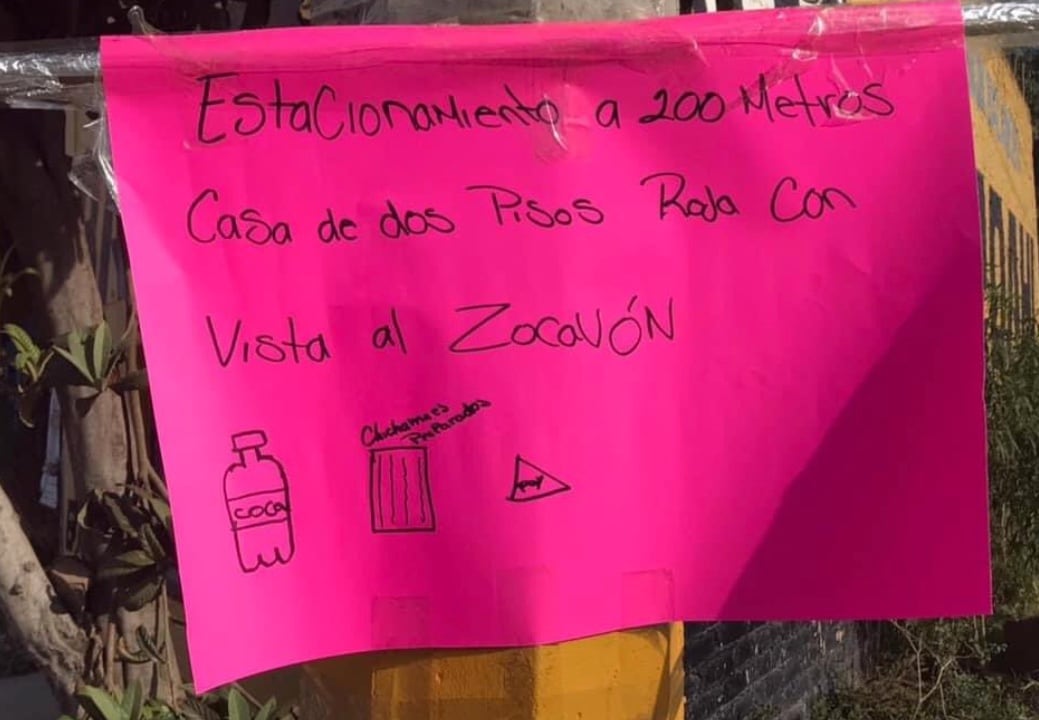 EstaCionaMiento a 200 Metros
Casa de dos Pisos Roja Con
Vista al ZocaVÓN
Preparados
COCA